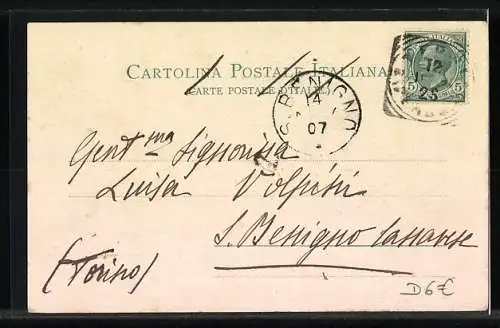 CARTOLINA POSTALE ITALIANA
(CARTE POSTALE D'ITALIE)
S. BENIGNO
14
07
12
5 5
Gent.ma Signorina
Luisa Volpini
S. Benigno Canavese
(Torino)
D6€